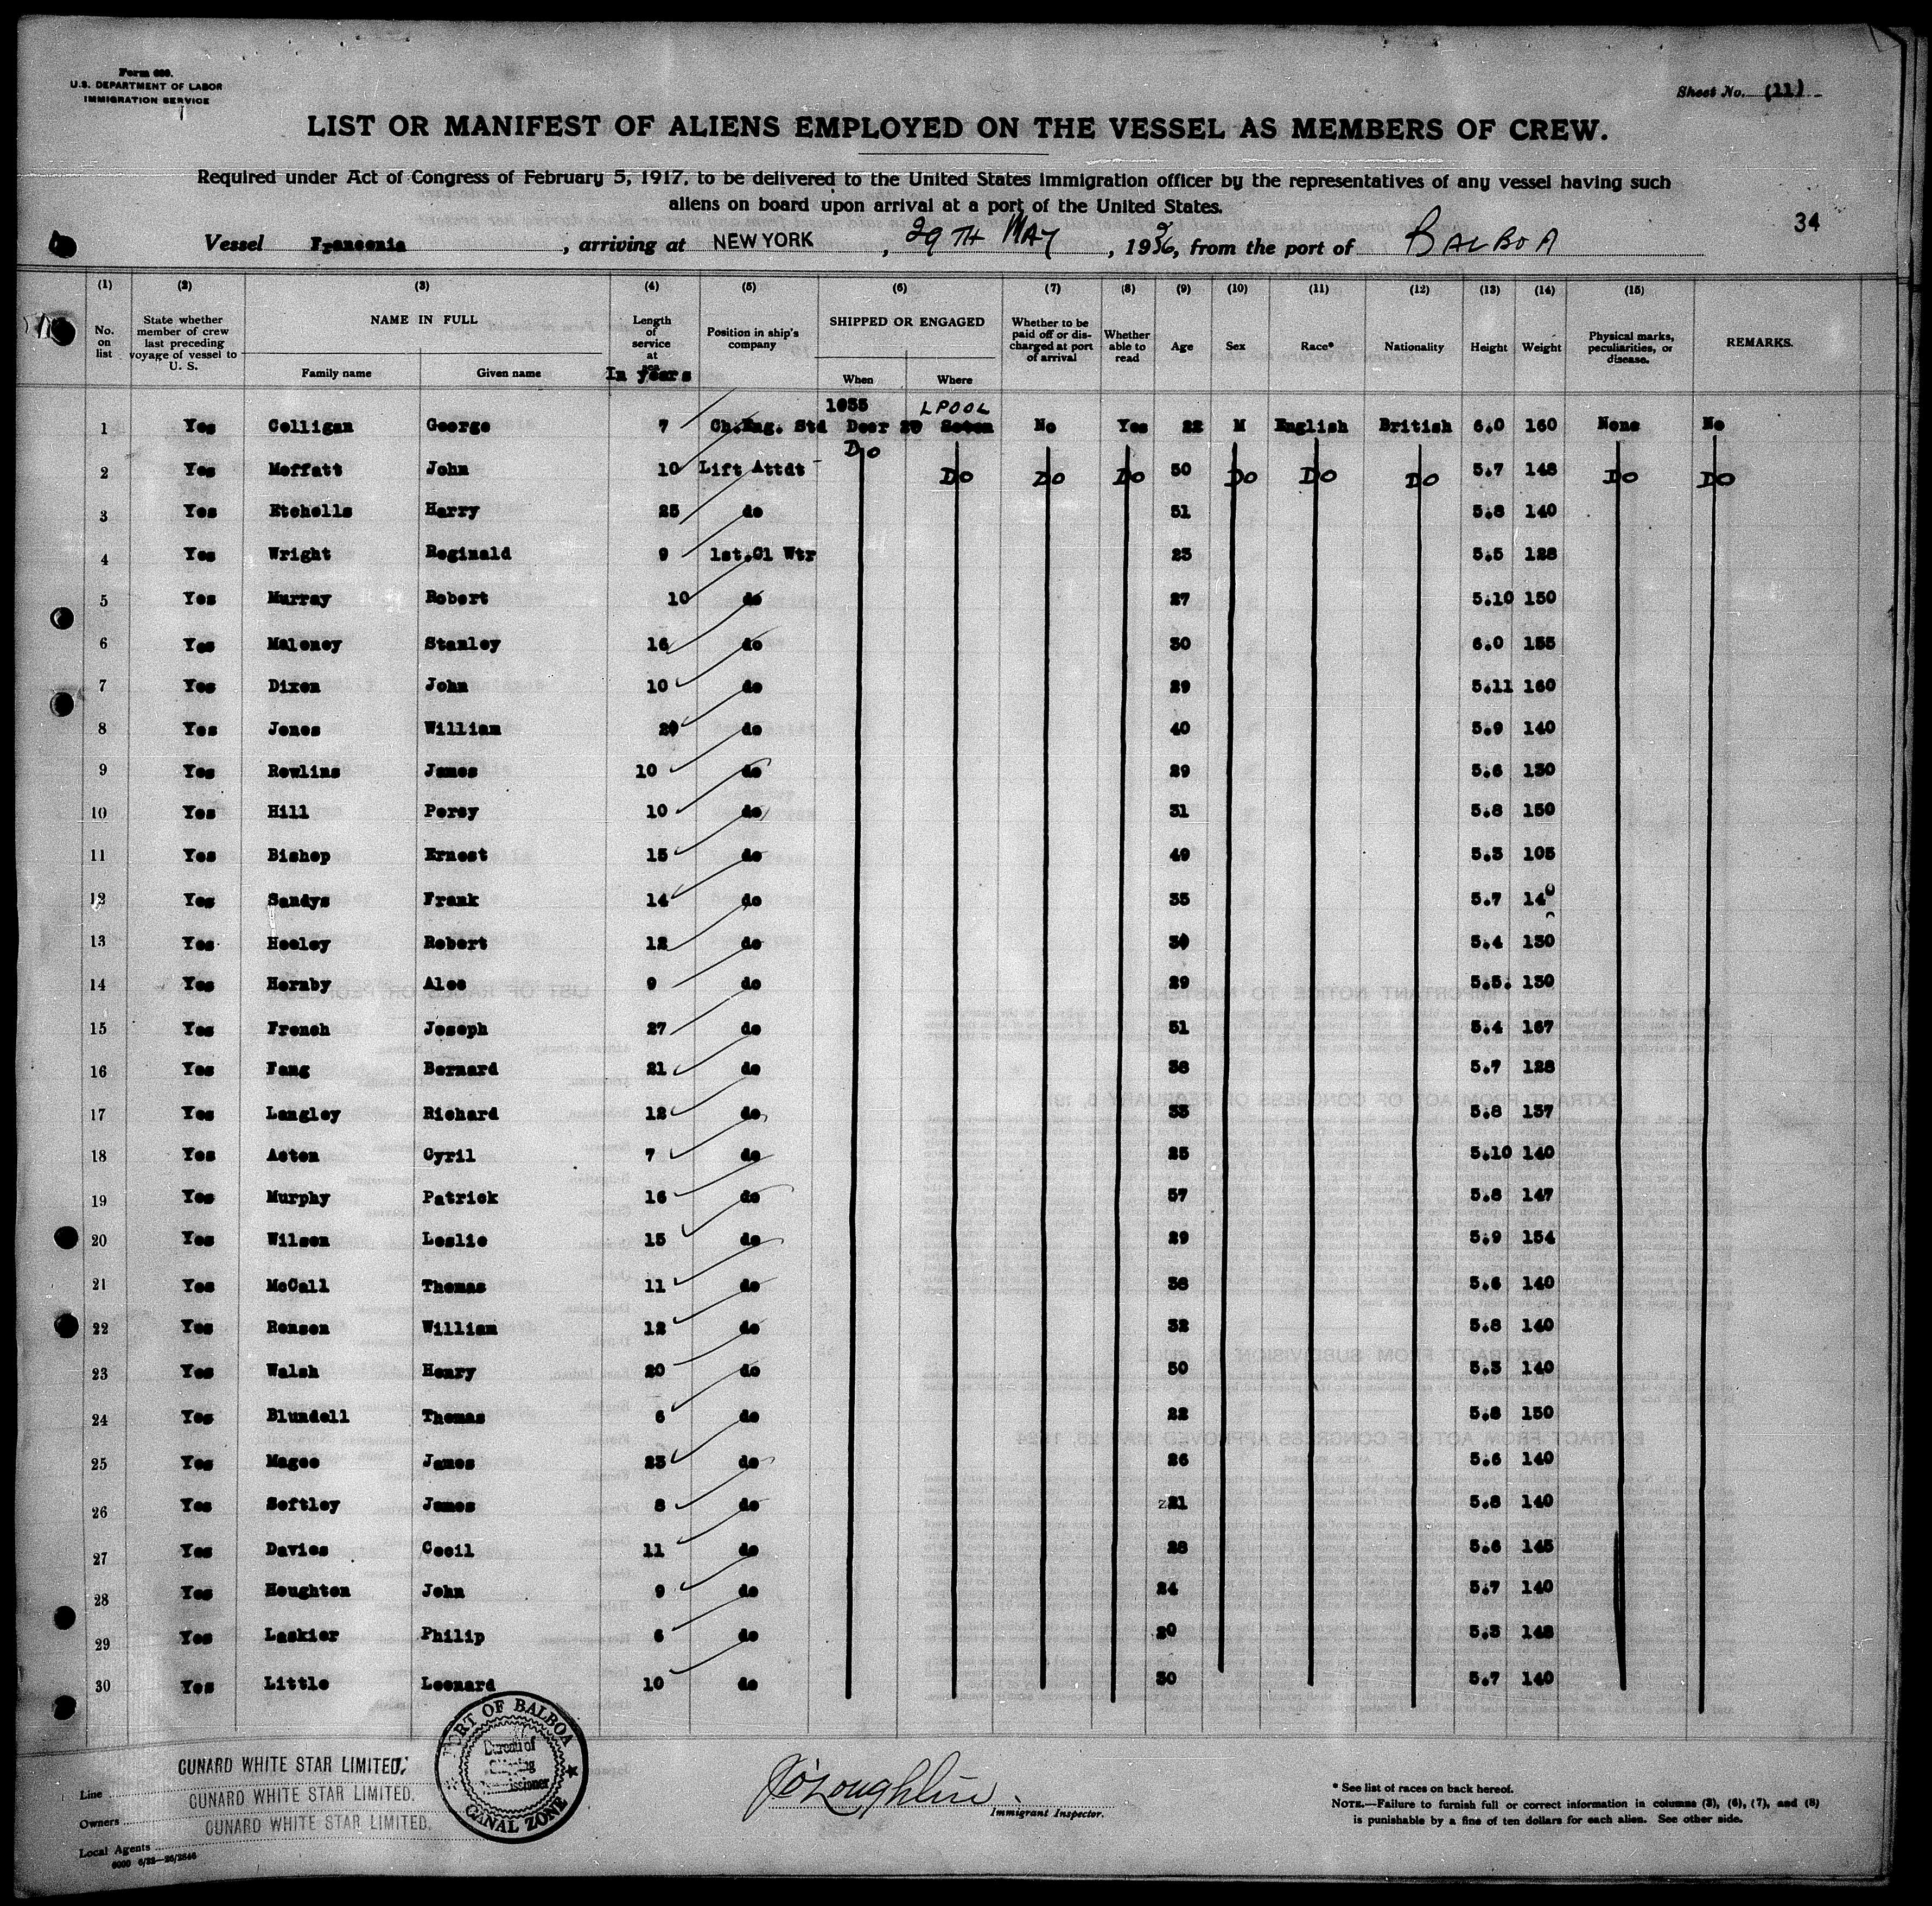 Form 680.
U.S. DEPARTMENT OF LABOR
IMMIGRATION SERVICE
Sheet No. (11)
LIST OR MANIFEST OF ALIENS EMPLOYED ON THE VESSEL AS MEMBERS OF CREW.
Required under Act of Congress of February 5, 1917, to be delivered to the United States immigration officer by the representatives of any vessel having such
aliens on board upon arrival at a port of the United States.
34
Vessel Franconia, arriving at NEW YORK, 29TH MAY, 1936, from the port of BALBOA
(1) (2) (3) (4) (5) (6) (7) (8) (9) (10) (11) (12) (13) (14) (15)
No. on list State whether member of crew last preceding voyage of vessel to U. S. NAME IN FULL Family name Given name Length of service at sea In years Position in ship's company SHIPPED OR ENGAGED When Where Whether to be paid off or discharged at port of arrival Whether able to read Age Sex Race* Nationality Height Weight Physical marks, peculiarities, or disease. REMARKS.
1935 LPOOL
1 Yes Colligan George 7 Ch.Eng. Std Decr 20 Soton No Yes 22 M English British 6.0 160 None No
2 Yes Moffatt John 10 Lift Attdt Do Do Do Do 50 Do Do Do 5.7 148 Do Do
3 Yes Etchells Harry 25 do 51 5.8 140
4 Yes Wright Reginald 9 1st.Cl Wtr 23 5.5 128
5 Yes Murray Robert 10 do 27 5.10 150
6 Yes Maloney Stanley 16 do 30 6.0 155
7 Yes Dixon John 10 do 29 5.11 160
8 Yes Jones William 20 do 40 5.9 140
9 Yes Rowlins James 10 do 29 5.6 130
10 Yes Hill Percy 10 do 31 5.8 150
11 Yes Bishop Ernest 15 do 49 5.3 105
12 Yes Sandys Frank 14 do 35 5.7 140
13 Yes Heeley Robert 12 do 30 5.4 130
14 Yes Hornby Alec 9 do 29 5.5. 130
15 Yes French Joseph 27 do 51 5.4 167
16 Yes Fang Bernard 21 do 38 5.7 128
17 Yes Langley Richard 12 do 33 5.8 137
18 Yes Acton Cyril 7 do 25 5.10 140
19 Yes Murphy Patrick 16 do 57 5.8 147
20 Yes Wilson Leslie 15 do 29 5.9 154
21 Yes McCall Thomas 11 do 36 5.6 140
22 Yes Renson William 12 do 32 5.8 140
23 Yes Walsh Henry 20 do 50 5.3 140
24 Yes Blundell Thomas 6 do 22 5.8 150
25 Yes Magee James 23 do 26 5.6 140
26 Yes Softley James 8 do 21 5.8 140
27 Yes Davies Cecil 11 do 28 5.6 145
28 Yes Houghton John 9 do 24 5.7 140
29 Yes Laskier Philip 6 do 20 5.3 148
30 Yes Little Leonard 10 do 30 5.7 140
PORT OF BALBOA
Bureau of
Shipping
Commissioner
CANAL ZONE
Line CUNARD WHITE STAR LIMITED.
Owners CUNARD WHITE STAR LIMITED.
Local Agents CUNARD WHITE STAR LIMITED.
6000 6/22—26/2846
J O'Loughlin.
Immigrant Inspector.
* See list of races on back hereof.
NOTE.—Failure to furnish full or correct information in columns (3), (6), (7), and (8)
is punishable by a fine of ten dollars for each alien. See other side.